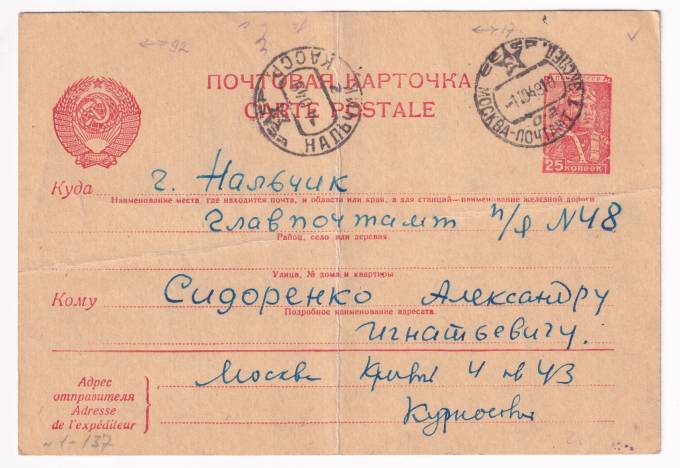 ↔92
↔17
ПОЧТОВАЯ КАРТОЧКА
CARTE POSTALE
НАЛЬЧИК КАССР
МОСКВА-ПОЧТАМТ
25 КОПЕЕК
Куда г. Нальчик
Наименование места, где находится почта, и области или края, а для станций—наименование железной дороги
Главпочтамт п/я N48
Район, село или деревня
Улица, № дома и квартиры
Кому Сидоренко Александру
Подробное наименование адресата
Игнатьевичу.
Адрес
отправителя
Adresse
de l'expéditeur
Москва 4 кв 43
1-137